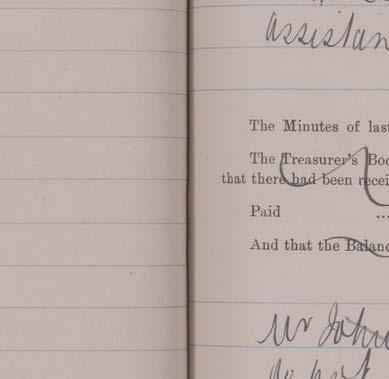 assistan
The Minutes of last
The Treasurer's Boo
that there had been recei
Paid ...
And that the Balanc
Mr John
do not